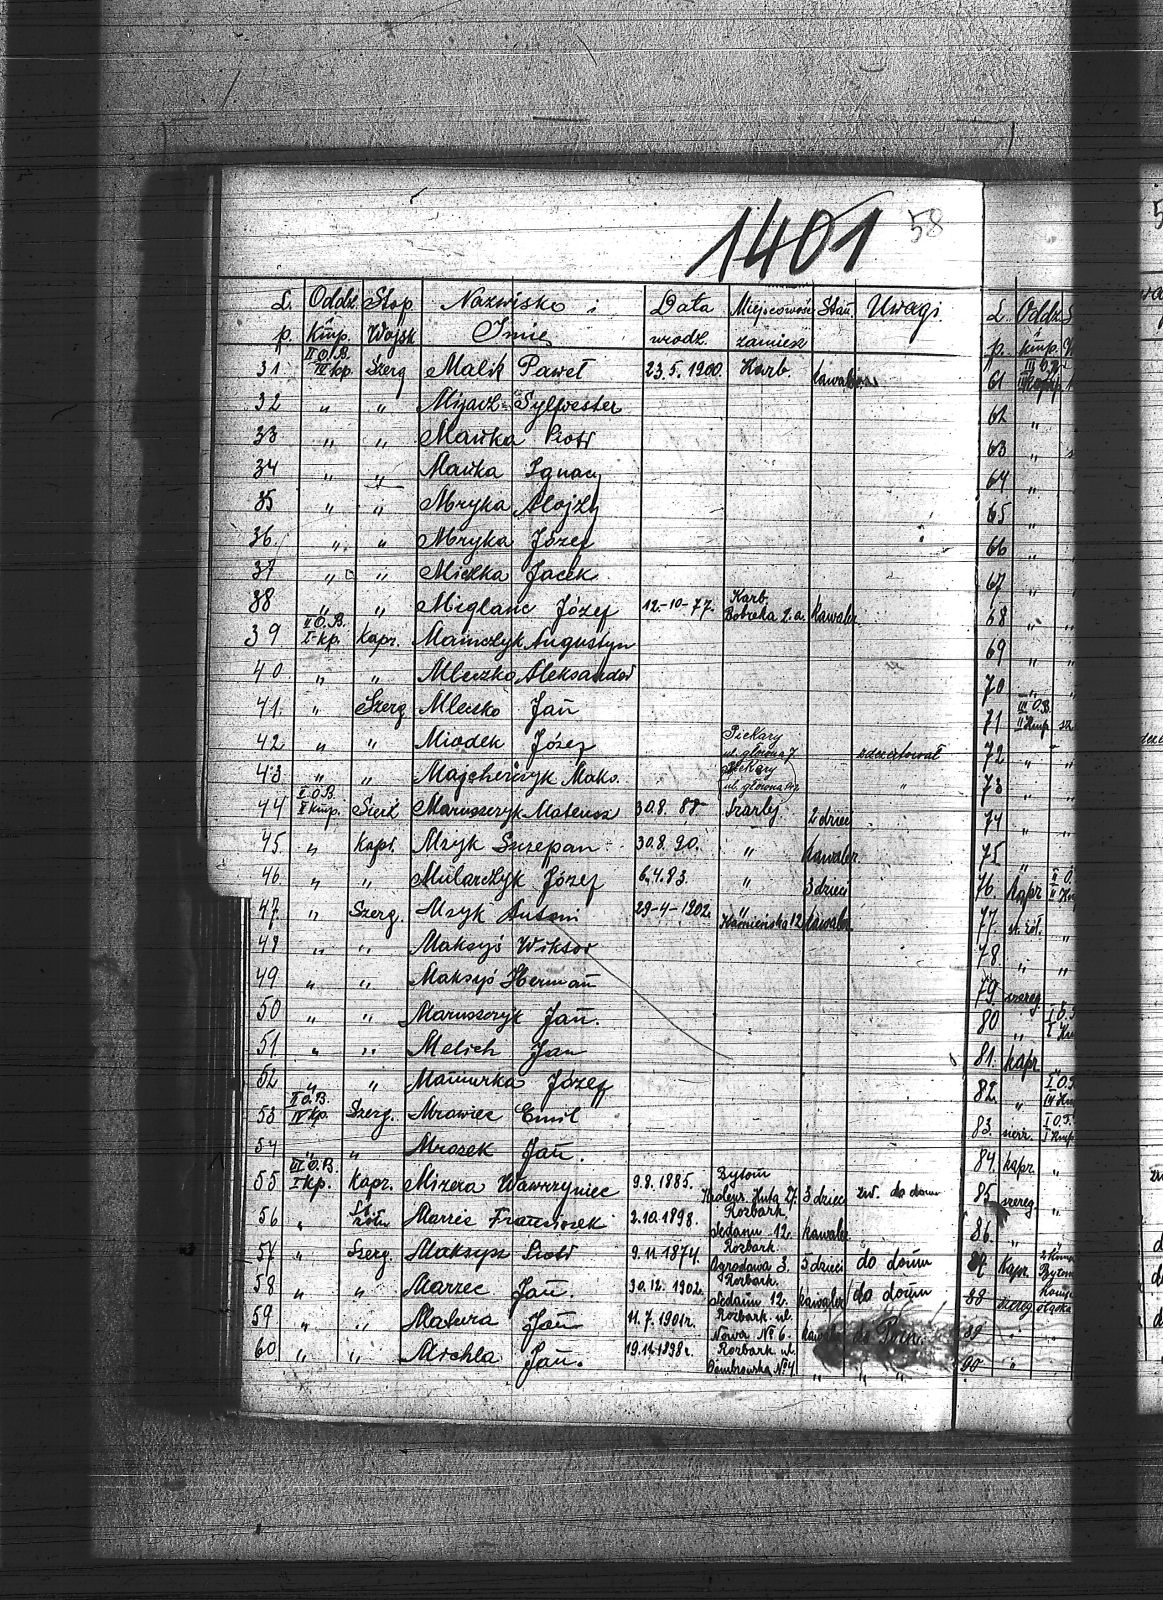 1401 58
L. Oddz. Stop. Nazwisko i Data Miejscowość Stan. Uwagi
p. Kmp. Wojsk Imię urodz. zamiesz
31 II O.B. IV kp. Szerg Malik Paweł 23.5.1900. Karb. kawaler
32 " " Sylwester
33 " " Mańka Piotr
34 " " Mańka Ignacy
35 " " Mryka Alojzy
36 " " Mryka Józef
37 " " Miczka Jacek
38 " " Miglanc Józef 12.-10-77. Karb Bobreka 2.a. kawaler
39 II O.B. I kp. Kapr. Mainczyk Augustyn
40 " " Mleczko Aleksander
41. " Szerg Jan
42 " " Miodek Józef Piekary ul. głowna 7 zdezertował
43 " " Majcherczyk Maks. Piekary ul. głowna "
44 II O.B. II kmp. Maruszczyk Mateusz 30.8.88 Szarlej 2 dzieci
45 " Kapr. Mzyk Szczepan 30.8.90. " kawaler
46. " " Mularczyk Józef 6.4.83. " 3 dzieci
47. " Szerg. Mzyk Antoni 29-4-1902. " Kamieńska 12 kawaler
48 " " Maksyś Wiktor
49 " " Maksyś Herman
50 " " Maruszczyk Jan.
51 " " Melich Jan
52 " " Józef
53 II O.B. IV kp. Szerg. Mrawiec Emil
54 " " Mrosek Jan.
55 III O.B. I kp. Kapr. Mizera Wawrzyniec 9.8.1885. Bytom Huta 27. 3 dzieci zw. do domu
56 " St. żołn Marzec Franciszek 2.10.1898. Rozbark Sedanu 12. kawaler
57 " Szerg. Maksysz Piotr 9.11.1874. Rozbark Ogrodowa 3. 5 dzieci do domu
58 " " Marzec Jan. 30.12.1902. Rozbark. Sedanu 12. kawaler do domu
59 " " Matura Jan 11.7.1901r. Rozbark. ul. Nowa № 6. kawaler
60 " " Michla Jan. 19.11.1898r. Rozbark ul. № 4. " " "
L. Oddz.
p. Kmp.
61 III O.B.
62 "
63 "
64 "
65 "
66 "
67 "
68 "
69 "
70 "
71 III O.B. II Kmp.
72 "
73 "
74 "
75 "
76. Kapr
77. st. żoł. "
78 " "
79 szereg.
80 "
81. kapr
82. "
83.
84. kapr "
85 szereg. "
86. "
87 Kapr.
88 szereg
89 "
90 "